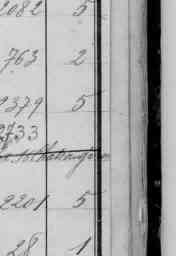 2082 5
763 2
2379 5
2733
2201 5
28 1